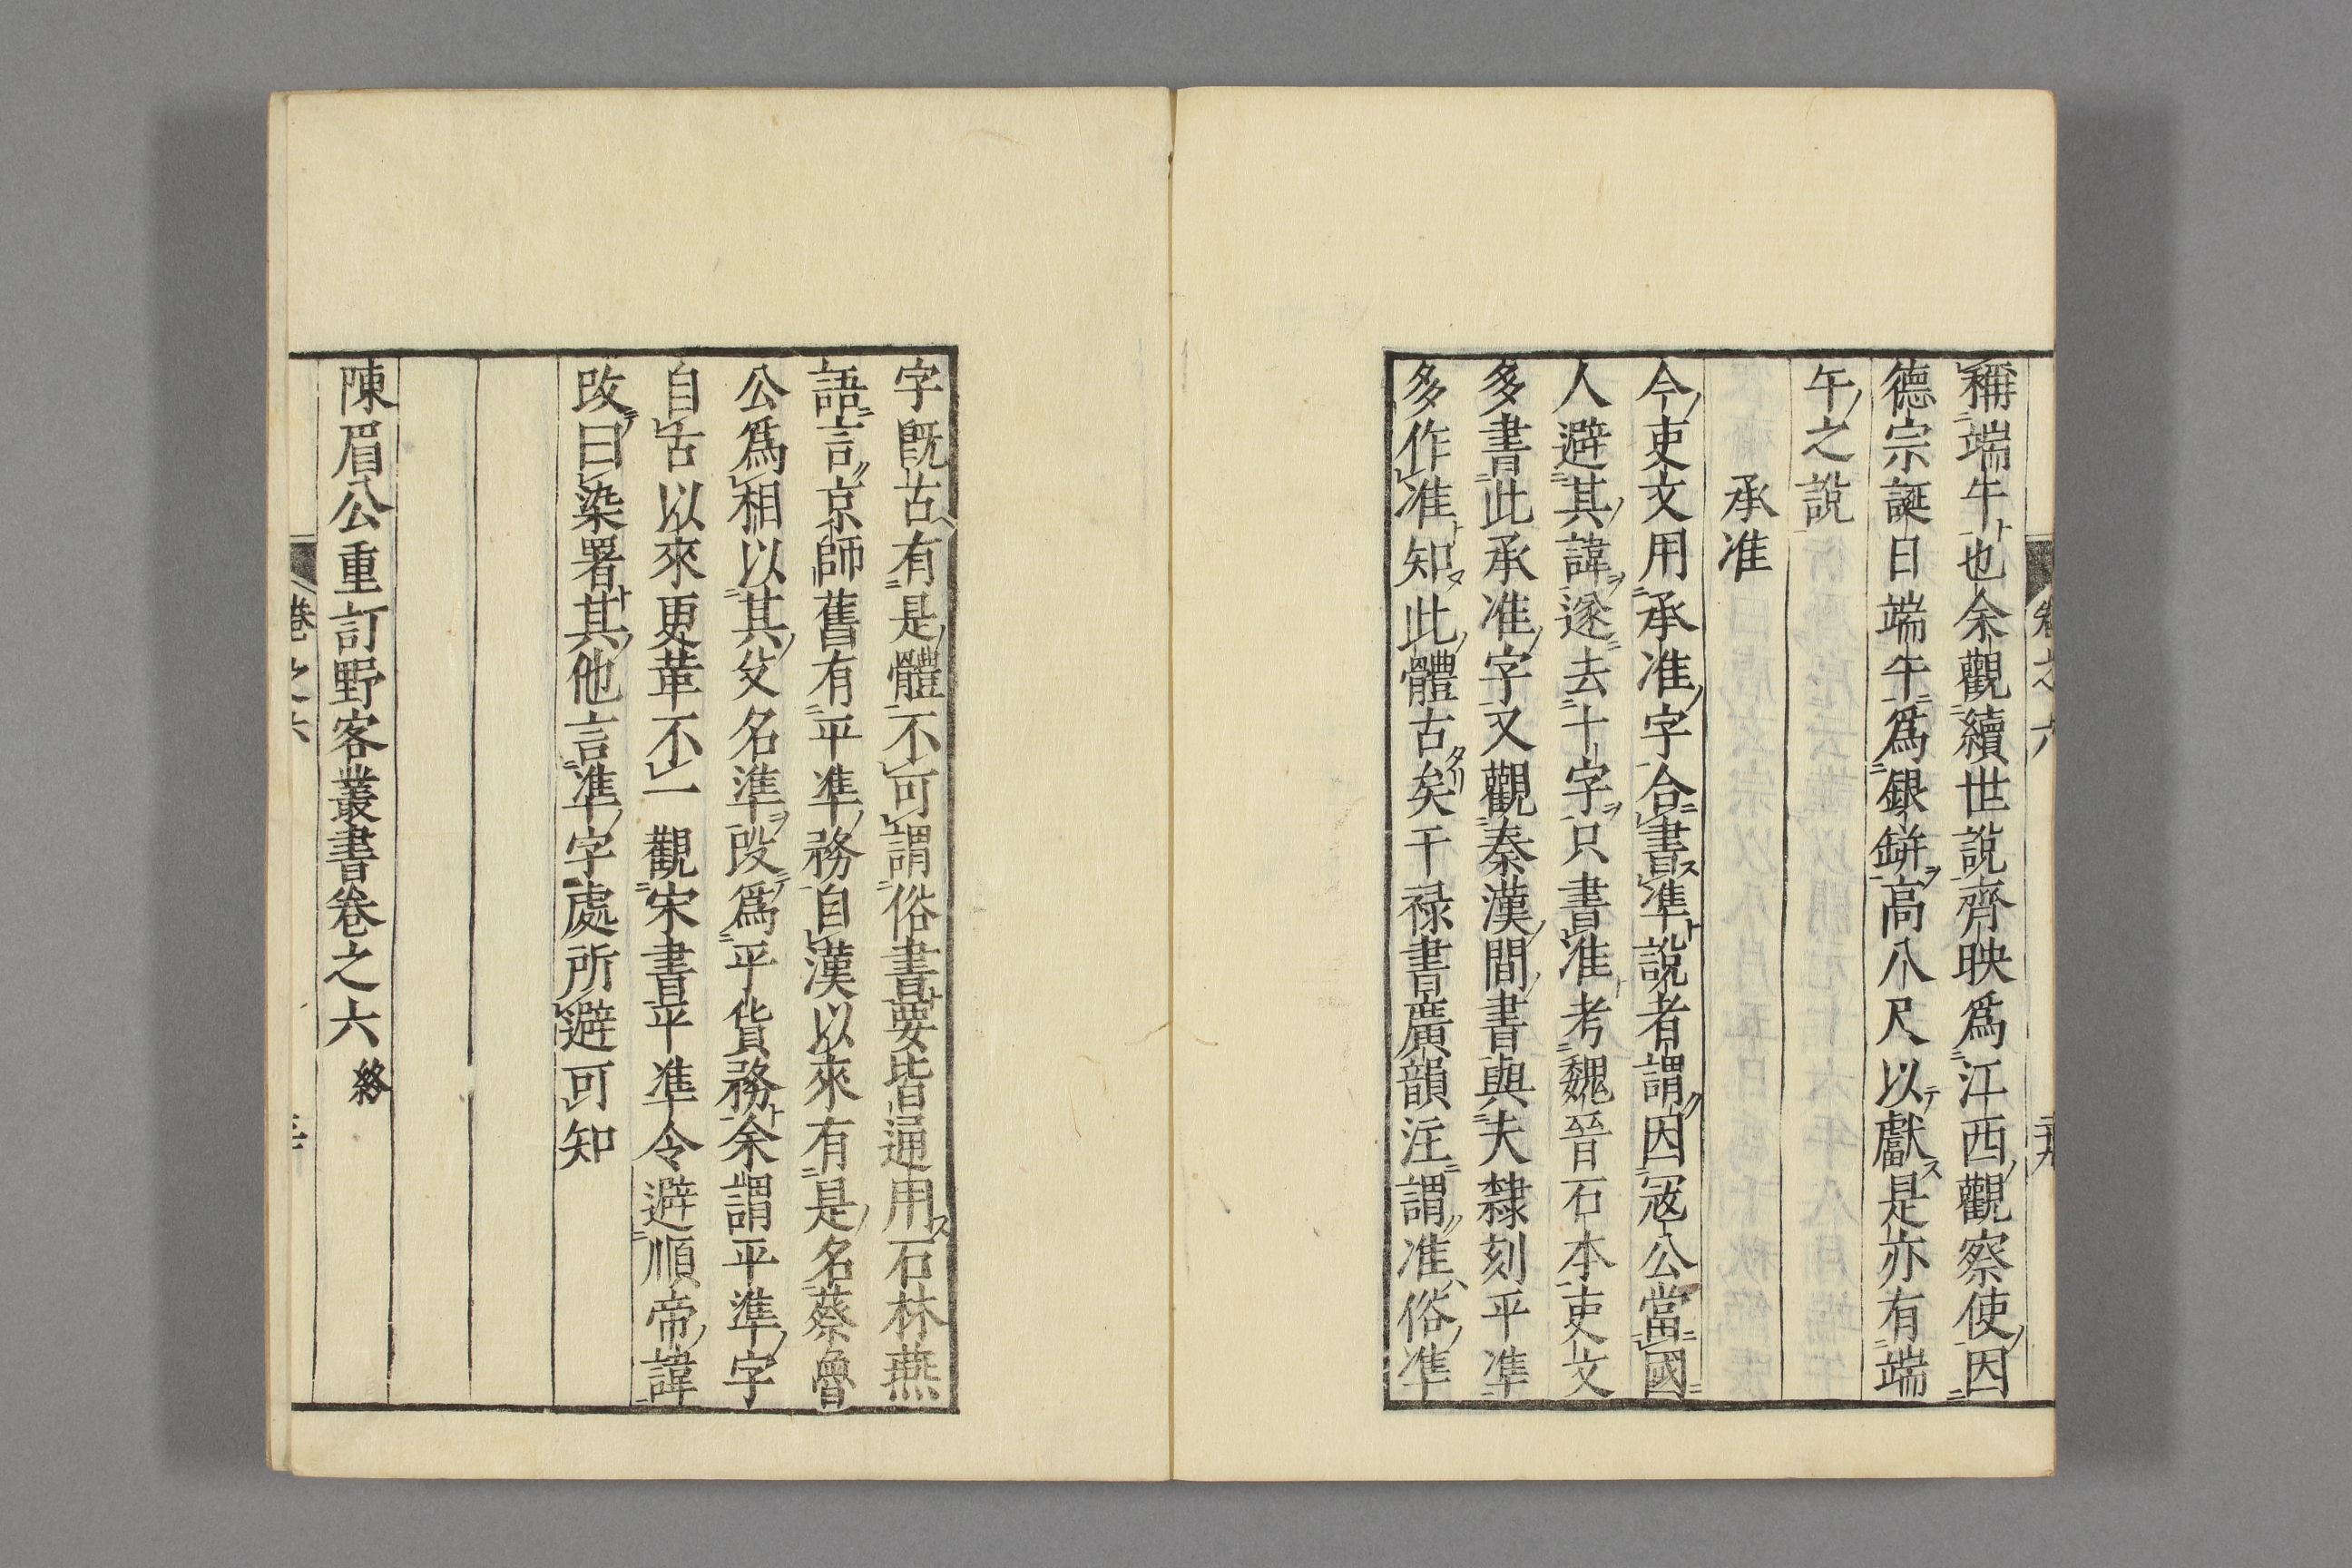 稱端午也余觀續世説齊映爲江西觀察使因
德宗誕日端午爲銀缾高八尺以獻是亦有端
午之説
承准
今吏文用承准字合書準説者謂因寇公當國
人避其諱遂去十字只書准考魏晉石本吏文
多書此承准字又觀秦漢間書與夫隸刻平準
多作准知此體古矣干祿書廣韻注謂准俗準
卷之六
字既古有是體不可謂俗書要皆通用石林燕
語言京師舊有平準務自漢以來有是名蔡魯
公爲相以其父名準改爲平貨務余謂平準字
自古以來更革不一觀宋書平準令避順帝諱
改曰染署其他言準字處所避可知
陳眉公重訂野客叢書卷之六 終
卷之六